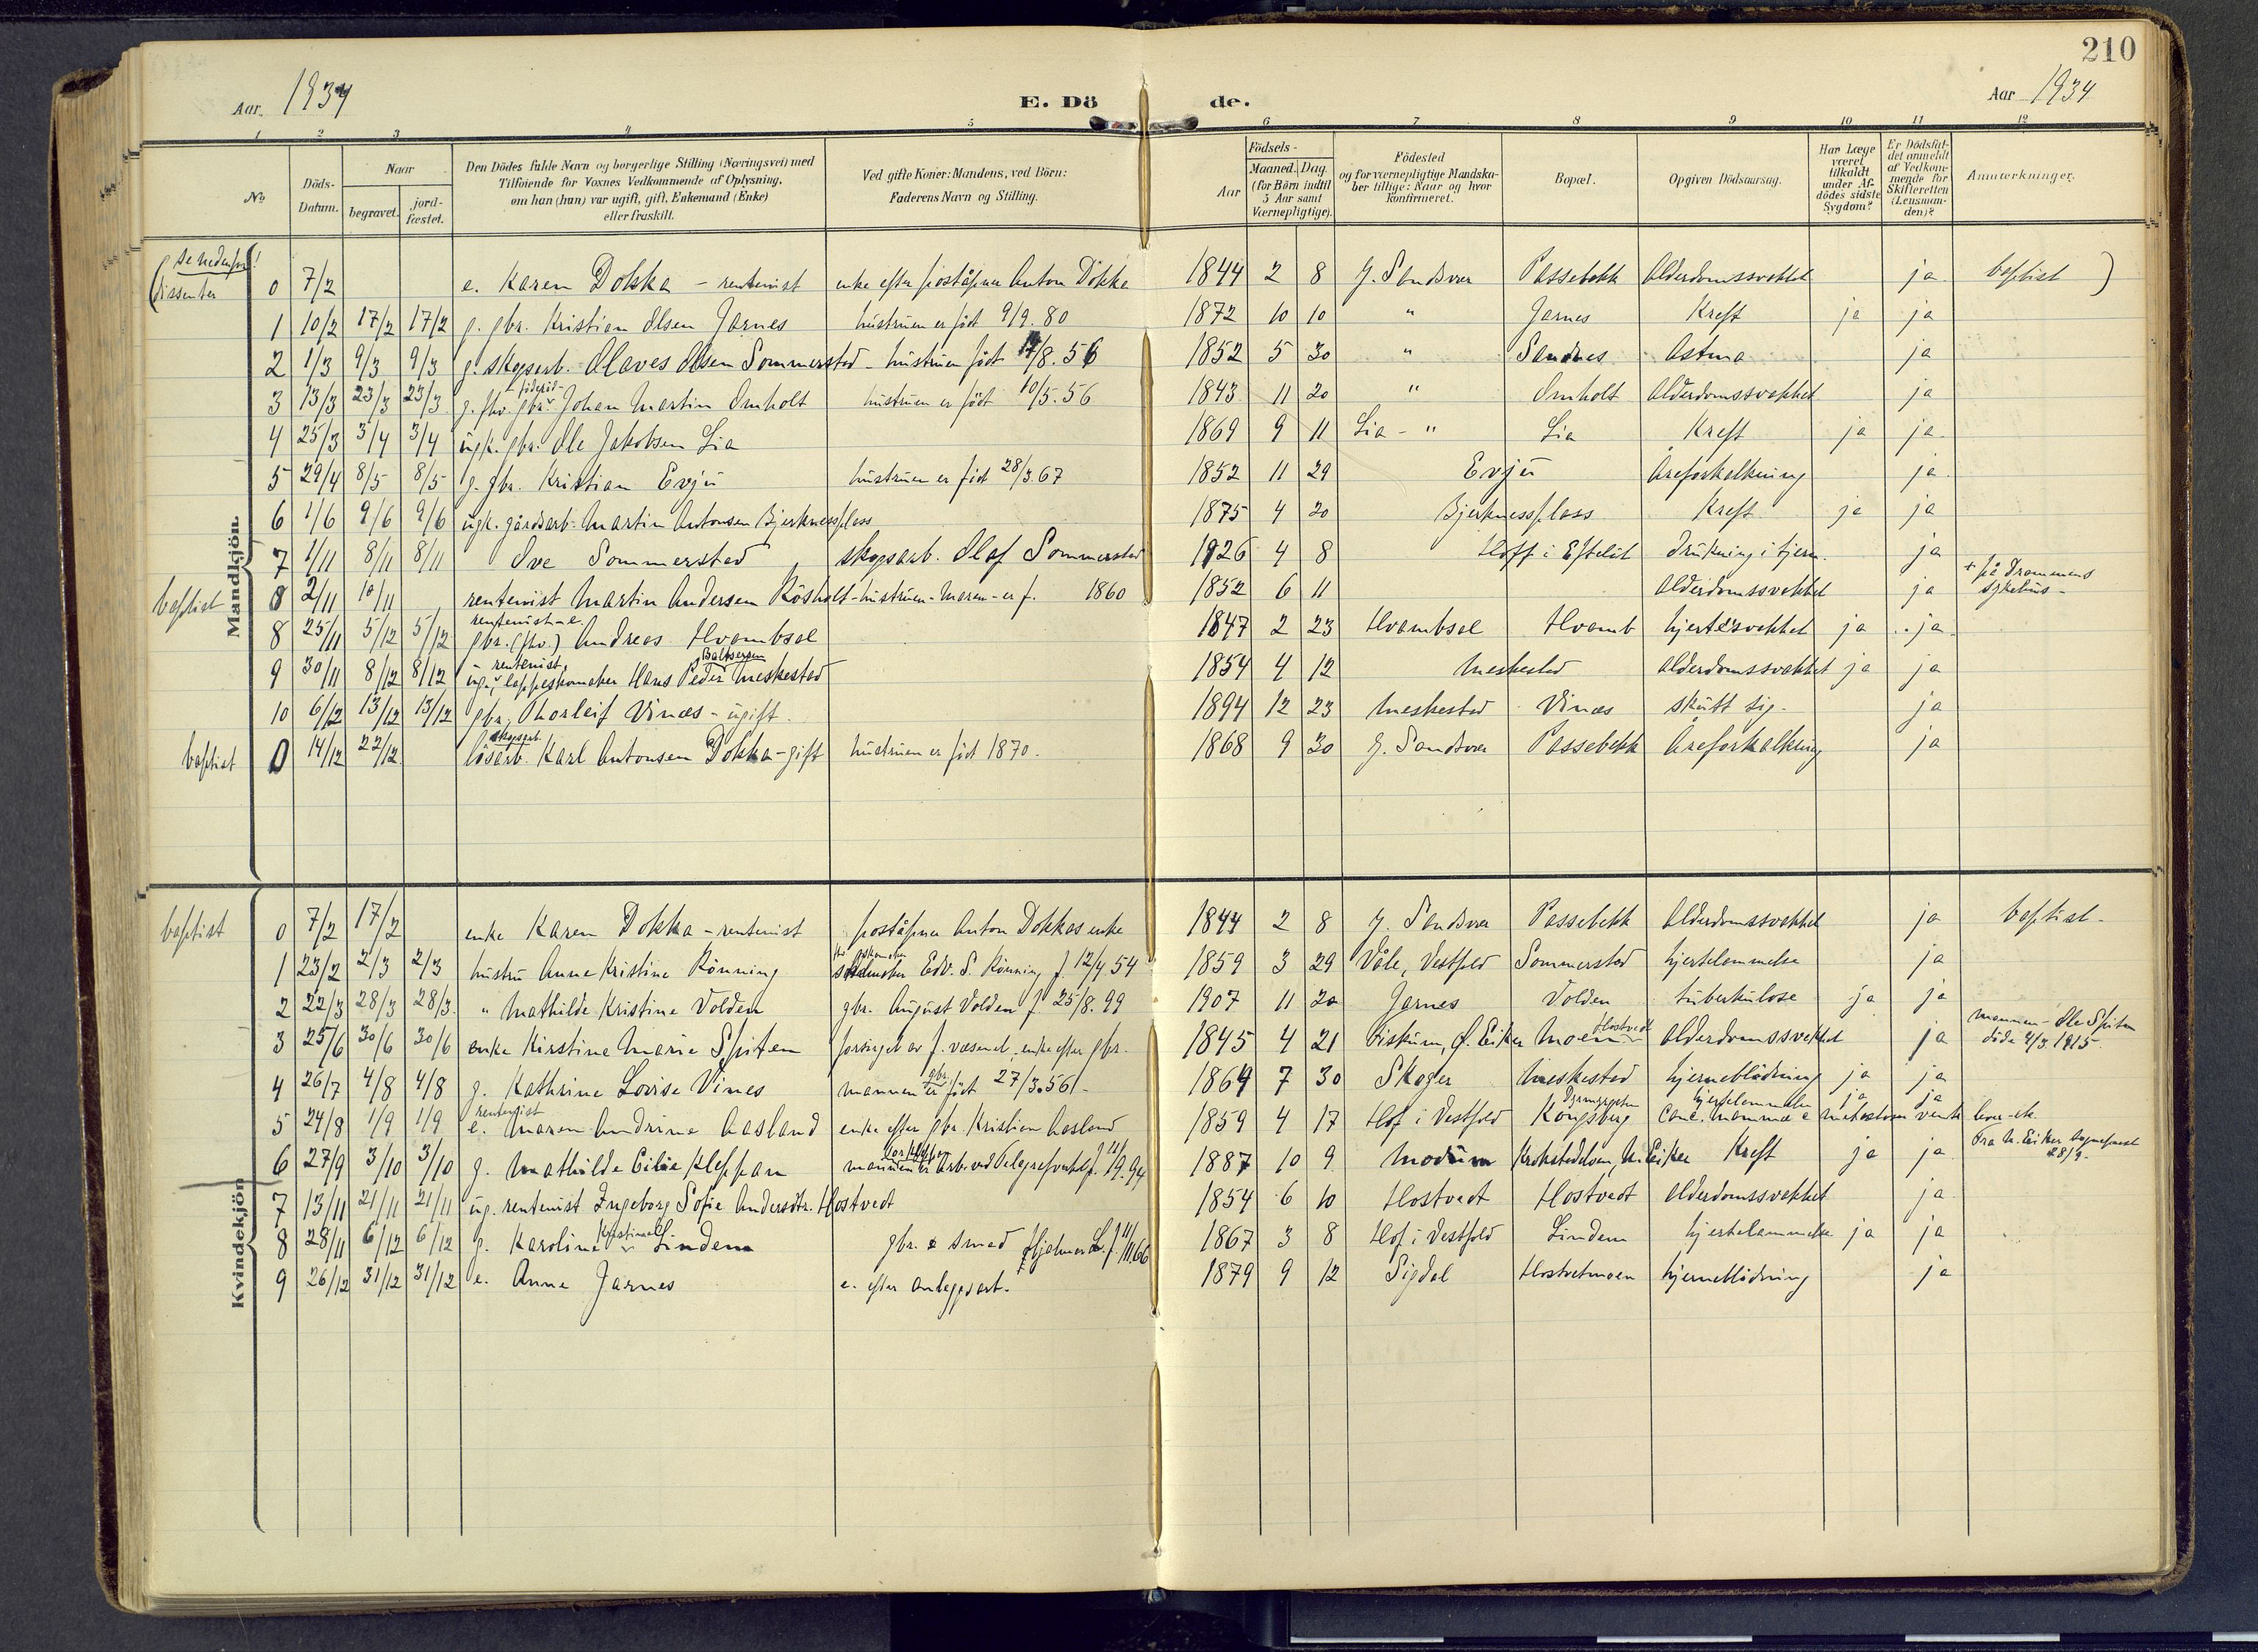 210
Aar 1934
E. Dö de.
Aar 1934
1 2 3 4 5 6 7 8 9 10 11 12
No
Döds-Datum.
Naar
begravet.
jord-fæstet.
Den Dödes fulde Navn og borgerlige Stilling (Næringsvei) med
Tilföiende for Voxnes Vedkommende af Oplysning,
om han (hun) var ugift, gift, Enkemand (Enke)
eller fraskilt.
Ved gifte Koner: Mandens, ved Börn:
Faderens Navn og Stilling.
Födsels-
Aar
Maaned. Dag.
(for Börn indtil
5 Aar samt
Værnepligtige).
Födested
og for værnepligtige Mandska-
ber tillige: Naar og hvor
konfirmeret.
Bopæl.
Opgiven Dödsaarsag.
Har Læge
været
tilkaldt
under Af-
dödes sidste
Sygdom?
Er Dödsfal-
det anmeldt
af Vedkom-
mende for
Skifteretten
(Lensman-
den)?
Anmærkninger.
Mandkjön.
(se nedenfor!
dissenter 0 7/2 e. Karen Dokka - rentenist enke efter poståpner Anton Dokka 1844 2 8 Y. Sandsvær Passebekk Alderdomssvekket ja baptist )
1 10/2 17/2 17/2 g. gbr. Kristian Olsen Jarnes hustruen er født 9/9. 80 1872 10 10 " Jarnes Kreft ja ja
2 1/3 9/3 9/3 g. skogsarb. Olaves Olsen Sommerstad - hustruen født 17/8. 56 1852 5 30 " Sandnes Astma ja
3 13/3 23/3 23/3 g. fhv. gbr. Johan Martin Omholt hustruen er født 10/5. 56 1843 11 20 " Omholt Alderdomssvekket ja
4 25/3 3/4 3/4 ugk. gbr. Ole Jakobsen Lia 1869 9 11 Lia - " Lia Kreft ja ja
5 29/4 8/5 8/5 g. gbr. Kristian Evju hustruen er født 28/3. 67 1852 11 29 Evju Åreforkalkning ja
6 1/6 9/6 9/6 ugk. gårdsarb. Martin Antonsen Bjerknessplass 1875 4 20 Bjerknessplass Kreft ja ja
7 1/11 8/11 8/11 Ove Sommerstad skogsarb. Olaf Sommerstad 1926 4 8 Hoff i Efteløt Drukning i tjern. ja
baptist 0 2/11 10/11 rentenist Martin Andersen Rösholt - hustruen - Maren - er f. 1860 1852 6 11 Alderdomssvekket ja + på Drammens
sykehus -
rentenist - e.
8 25/11 5/12 5/12 gbr. (fhv.) Andreas Hvambsal 1847 2 23 Hvambsal Hvamb hjertesvekket ja ja
rentenist Baltsersen
9 30/11 8/12 8/12 ug. lappeskomaker Hans Peder Meskestad 1854 4 12 Meskestad alderdomssvekket ja ja
10 6/12 13/12 13/12 gbr. Thorleif Vinæs - ugift. 1894 12 23 Meskestad Vinæs skutt sig - ja
skogsarb.
baptist 0 14/12 22/12 løsarb. Karl Antonsen Dokka - gift hustruen er født 1870. 1868 9 30 Y. Sandsvær Passebekk Åreforkalkning ja
Kvindekjön
baptist 0 7/2 17/2 enke Karen Dokka - rentenist poståpner Anton Dokkas enke 1844 2 8 Y. Sandsvær Passebekk Alderdomssvekket ja baptist -
1 23/2 2/3 2/3 hustru Anne Kristine Rönning Edv. S. Rönning f. 12/4 54 1859 3 29 Våle, Vestfold Sommerstad hjertelammelse ja
2 22/3 28/3 28/3. " Mathilde Kristine Volden gbr. August Volden f. 25/8. 99 1907 11 20 Jarnes Volden tuberkulose ja ja
3 25/6 30/6 30/6 enke Kirstine Marie Spiten forsørget av f. vesenet, enke efter gbr. 1845 4 21 Fiskum, Ø. Eiker Moen Hostvedt Alderdomssvekket ja mannen - Ole Spiten
døde 4/3. 1915.
4 26/7 4/8 4/8 g. Kathrine Lovise Vines mannen gbr. er født 27/3. 561 - 1864 7 30 Skoger Meskestad hjerneblødning ja ja
rentenist
5 24/8 1/9 1/9 e. Maren Andrine Aasland enke efter gbr. Kristian Aasland 1859 4 17 Hof i Vestfold Kongsberg hjertelammelse ja ja
Canc. mammae
6 27/9 3/10 3/10 g. Mathilde Cilia Kleppan mannen er arb. ved Telegrafverket f. 11/9. 94 1887 10 9 Modum Krokstadelven, N. Eiker Kreft ja ja Fra N. Eiker sogneprest
28/9 -
7 13/11 21/11 21/11 ug. rentenist Ingeborg Sofie Andersdtr. Hostvedt 1854 6 10 Hostvedt Hostvedt Alderdomssvekket ja
8 28/11 6/12 6/12 g. Karoline Kristine Linden gbr. & smed Hjalmar L. f. 11/11 66 1867 3 8 Hof i Vestfold Linden hjertelammelse ja ja
9 26/12 31/12 31/12 e. Anne Jarnes e. efter anleggsarb. 1879 9 12 Sigdal Hostvetmoen hjerneblødning ja